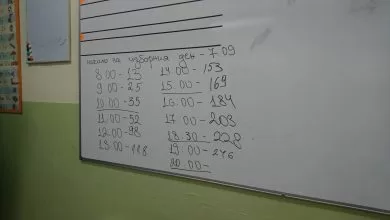 начало на изборния ден - 7.09
8.00 - 13
9.00 - 25
10.00 - 35
11.00 - 52
12.00 - 98
13.00 - 118
14.00 - 153
15.00 - 169
16.00 - 184
17.00 - 203
18.30 - 228
19.00 - 246
20.00 -